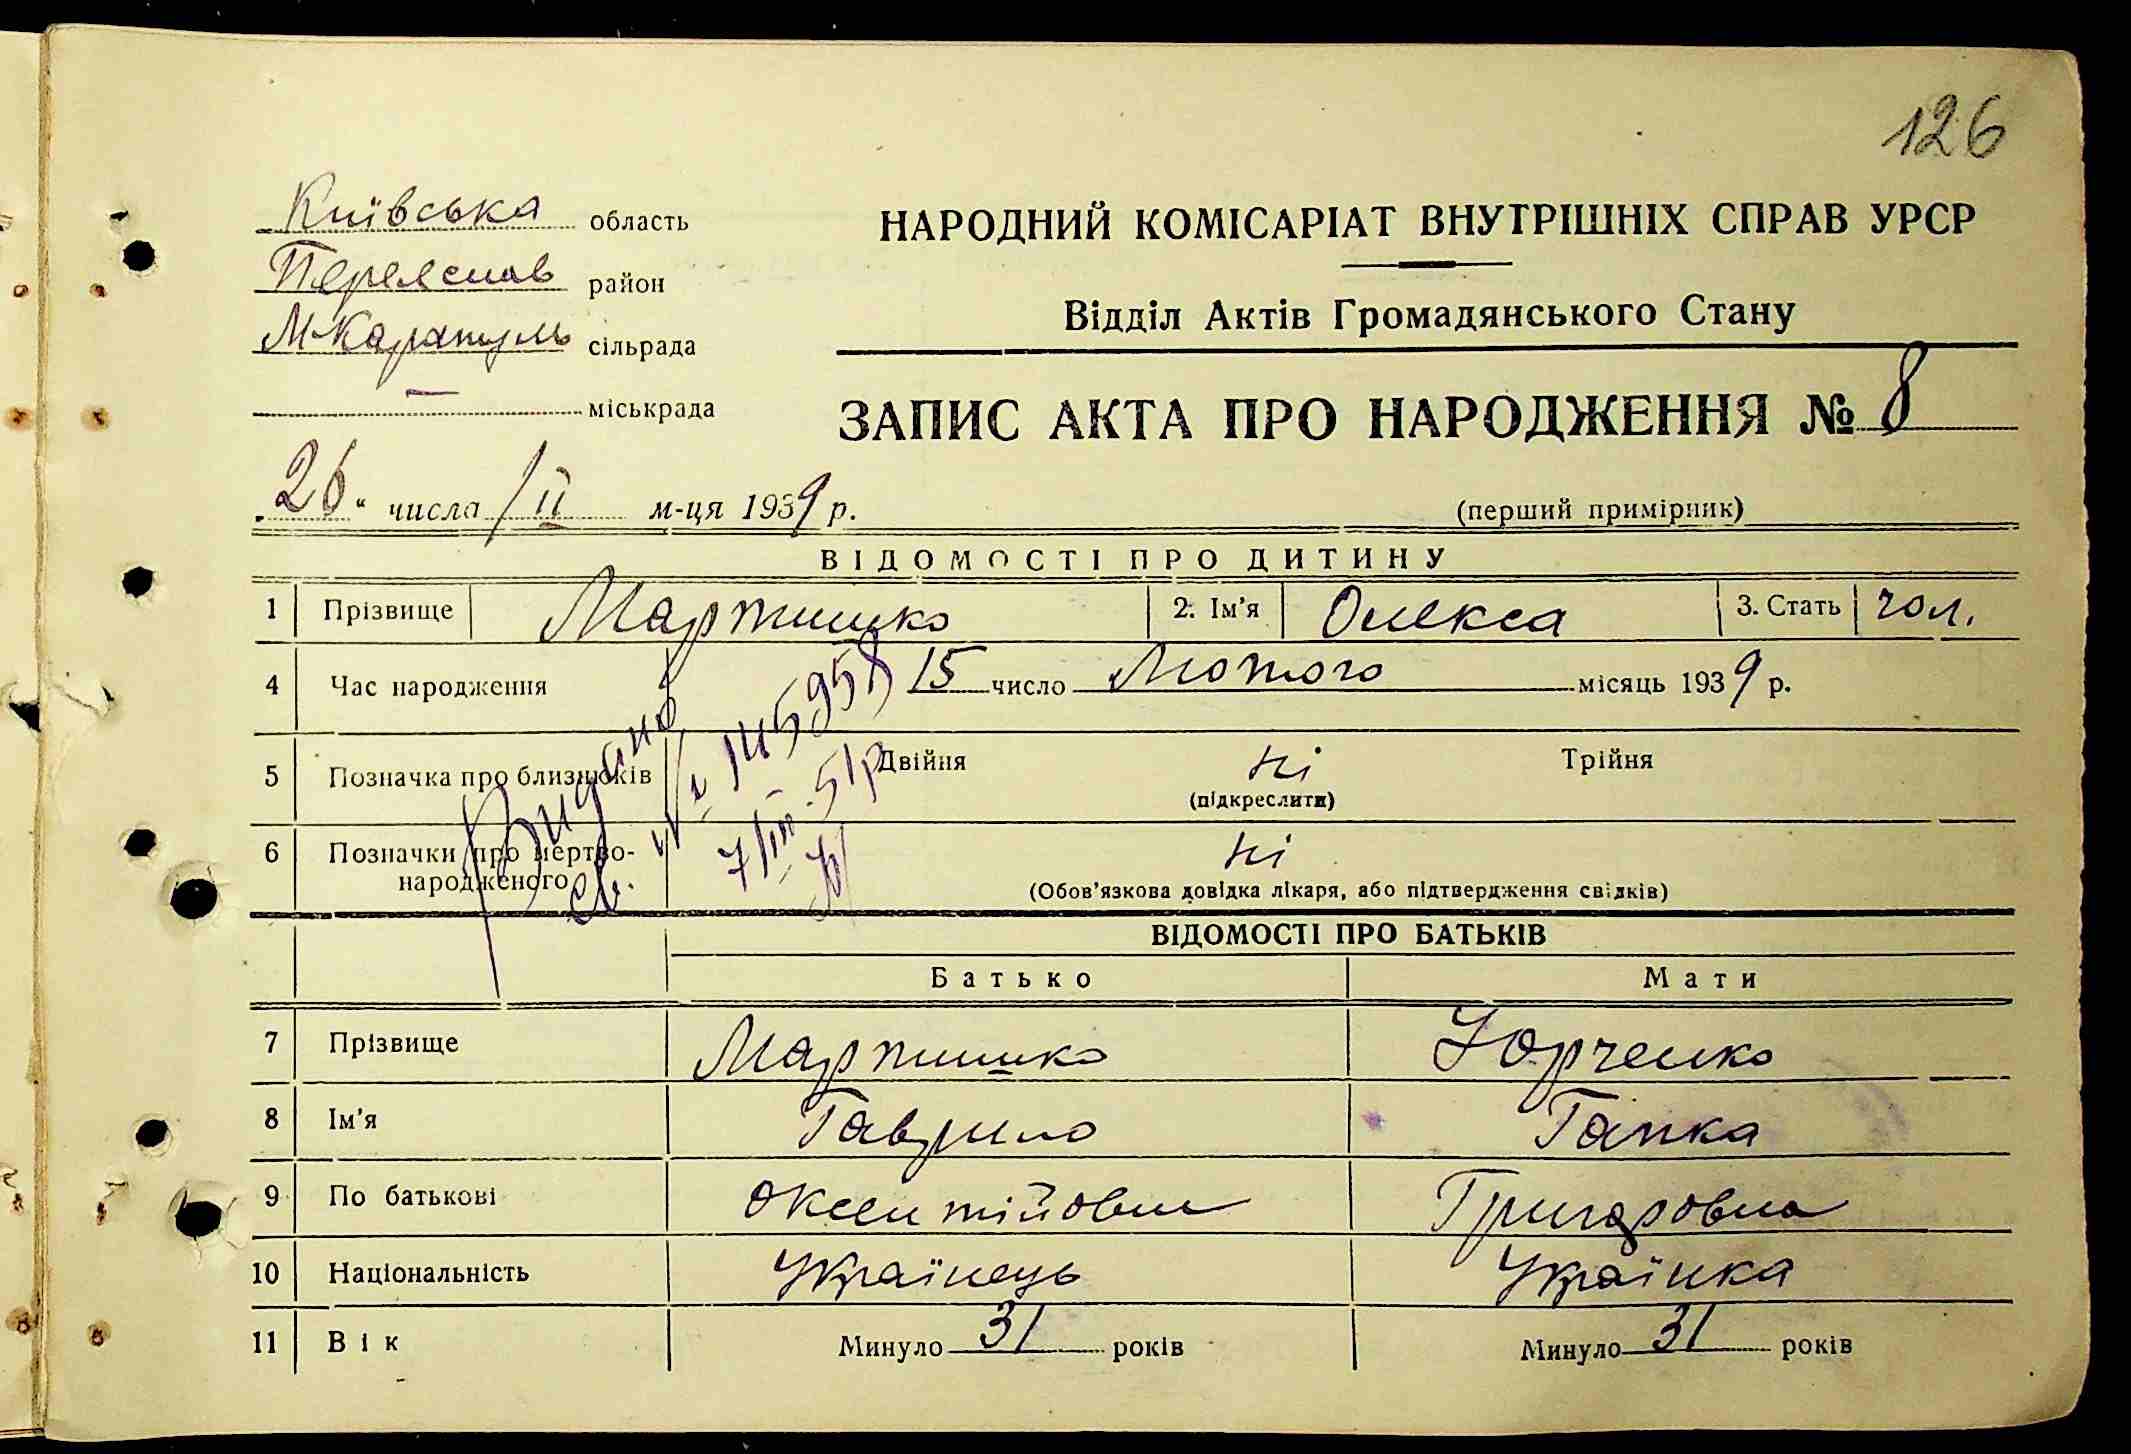 126
Київська область
Переяслав район
М-Каратуль сільрада
— міськрада
НАРОДНИЙ КОМІСАРІАТ ВНУТРІШНІХ СПРАВ УРСР
Відділ Актів Громадянського Стану
ЗАПИС АКТА ПРО НАРОДЖЕННЯ № 8
„26“ числа /II м-ця 1939 р.
(перший примірник)
ВІДОМОСТІ ПРО ДИТИНУ
1 Прізвище Мартишко 2. Ім'я Олекса 3. Стать чол.
4 Час народження 15 число Лютого місяць 1939 р.
5 Позначка про близнюків Двійня ні Трійня
(підкреслити)
6 Позначки про мертво-
народженого ні
(Обов'язкова довідка лікаря, або підтвердження свідків)
Видано
св. № 145958
7/III-51р
ВІДОМОСТІ ПРО БАТЬКІВ
Батько Мати
7 Прізвище Мартишко Юрченко
8 Ім'я Гаврило Гапка
9 По батькові Оксентійович Григоровна
10 Національність Українець Українка
11 Вік Минуло 31 років Минуло 31 років